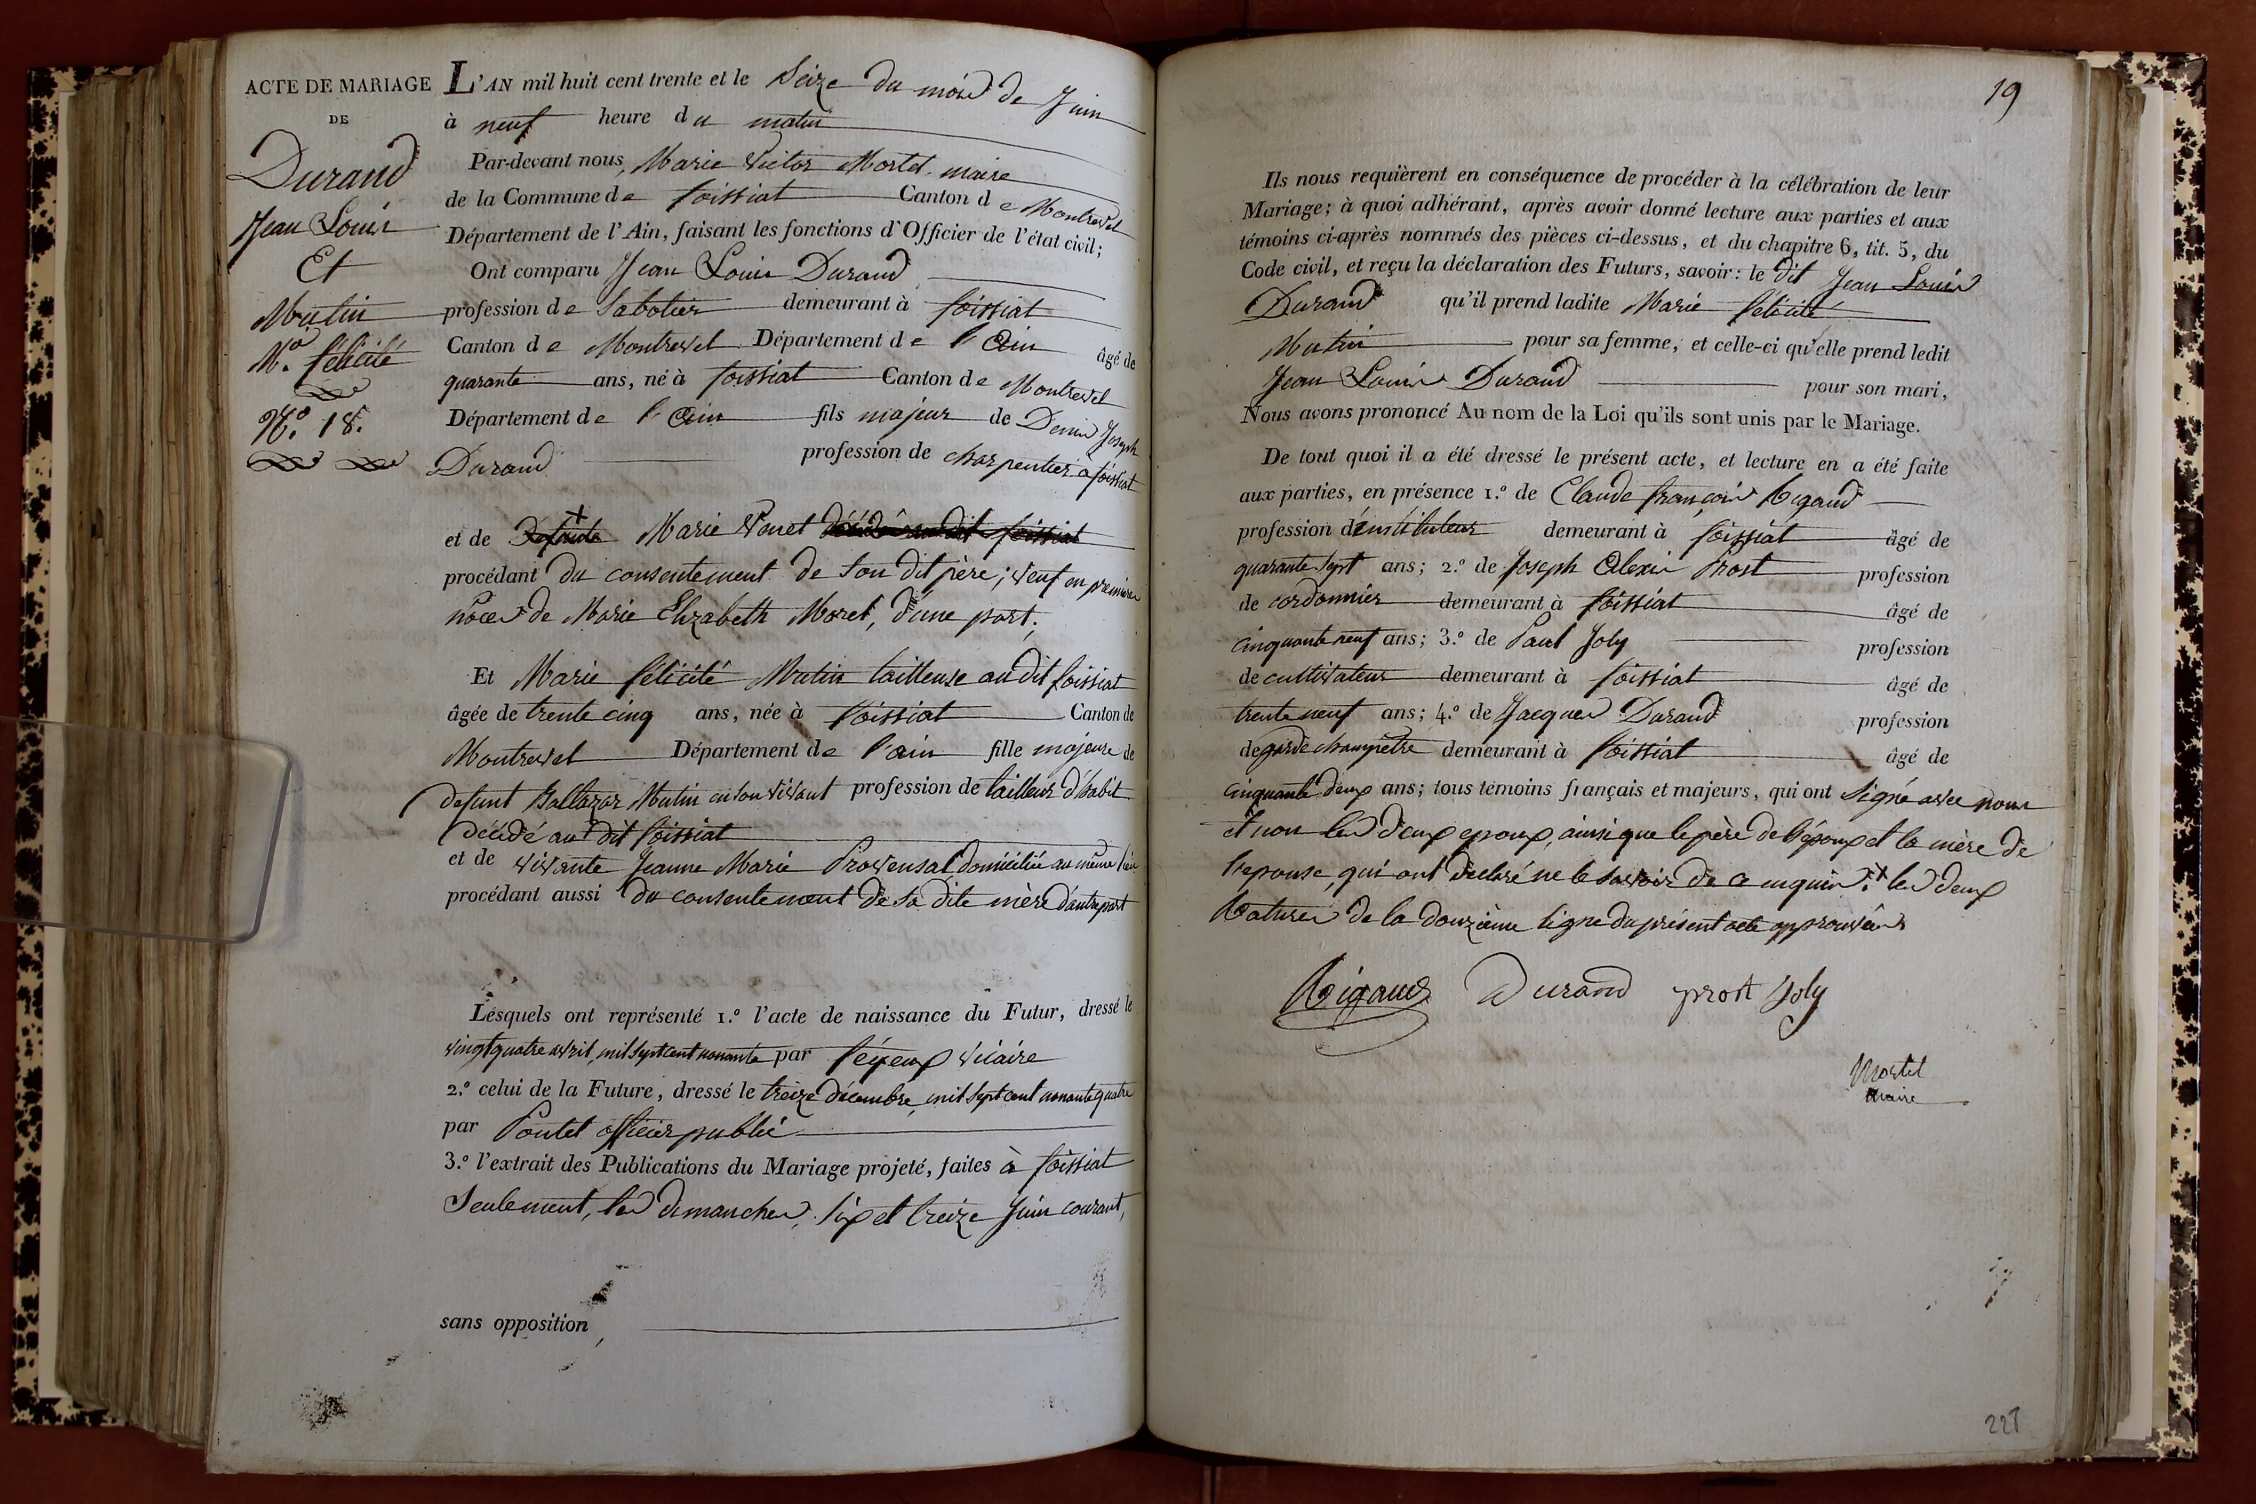 ACTE DE MARIAGE
DE
Durand
Jean Louis
Et
Mutin
Mie. félicité
No. 18.
L'AN mil huit cent trente et le Seize du mois de Juin
à neuf heure du matin
Par-devant nous, Marie Victor Mortel, maire
de la Commune de foissiat Canton de Montrevel
Département de l'Ain, faisant les fonctions d'Officier de l'état civil;
Ont comparu Jean Louis Durand
profession de Sabotier demeurant à foissiat
Canton de Montrevel Département de l'Ain âgé de
quarante ans, né à foissiat Canton de Montrevel
Département de l'Ain fils majeur de Denis Joseph
Durand profession de charpentier à foissiat
et de Defunte Marie Vouet décédée au dit foissiat
procédant du consentement de Son dit père; veuf en premières
noces de Marie Elizabeth Morel, d'une part;
Et Marie félicité Mutin tailleuse au dit foissiat
âgée de trente cinq ans, née à foissiat Canton de
Montrevel Département de l'ain fille majeure de
defunt Baltazar Mutin en son vivant profession de tailleur d'habit
décédé au dit foissiat
et de vivante Jeanne Marie Provensal domiciliée au même lieu
procédant aussi du consentement de Sa dite mère d'autre part
Lesquels ont représenté 1.º l'acte de naissance du Futur, dressé le
vingt quatre avril, mil sept cent nonante par vicaire
2.º celui de la Future, dressé le treize décembre, mil Sept cent nonante quatre
par Poutet officier public
3.º l'extrait des Publications du Mariage projeté, faites à foissiat
Seulement, les dimanches, six et treize Juin courant,
sans opposition,
19
Ils nous requièrent en conséquence de procéder à la célébration de leur
Mariage; à quoi adhérant, après avoir donné lecture aux parties et aux
témoins ci-après nommés des pièces ci-dessus, et du chapitre 6, tit. 5, du
Code civil, et reçu la déclaration des Futurs, savoir: le dit Jean Louis
Durand qu'il prend ladite Marie félicité
Mutin pour sa femme, et celle-ci qu'elle prend ledit
Jean Louis Durand pour son mari,
Nous avons prononcé Au nom de la Loi qu'ils sont unis par le Mariage.
De tout quoi il a été dressé le présent acte, et lecture en a été faite
aux parties, en présence 1.º de Claude françois Rigaud
profession d'instituteur demeurant à foissiat âgé de
quarante Sept ans; 2.º de Joseph Alexis Prost profession
de cordonnier demeurant à foissiat âgé de
cinquante neuf ans; 3.º de Paul Joly profession
de cultivateur demeurant à foissiat âgé de
trente neuf ans; 4.º de Jacques Durand profession
de garde champêtre demeurant à foissiat âgé de
cinquante deux ans; tous témoins français et majeurs, qui ont Signé avec nous
et non les deux epoux, ainsi que le père de l'époux et la mère de
l'epouse, qui ont declaré ne le Savoir de ce enquis. + les deux
Ratures de la douzième ligne du présent acte approuvées
Rigaud Durand prost Joly
Mortel
Maire
225